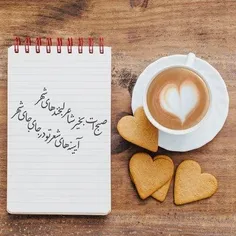 صبح‌ات بخیر شاعر لبخندهای شهر
آیینه‌های شعر تو در جای جای شهر